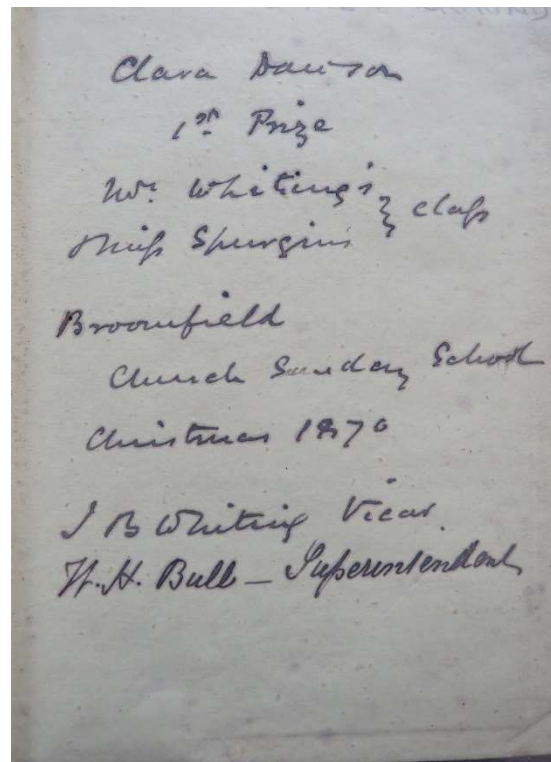 Clara Dawson
1st Prize
Mr. Whiting's } class
Miss Spurgins
Broomfield
Church Sunday School
Christmas 1870
J B Whiting Vicar.
W. H. Bull – Superintendent